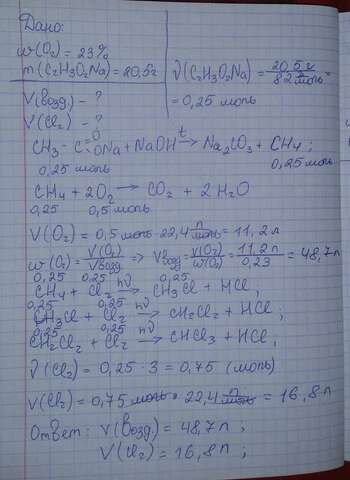 Дано:
w(O₂) = 23%
m(C₂H₃O₂Na) = 20,5г
V(возд.) - ?
V(Cl₂) - ?
ν(C₂H₃O₂Na) = 20,5 г / 82 г/моль =
= 0,25 моль
CH₃ - C(=O)ONa + NaOH →(t) Na₂CO₃ + CH₄;
0,25 моль 0,25 моль
CH₄ + 2O₂ → CO₂ + 2H₂O
0,25 0,5 моль
V(O₂) = 0,5 моль · 22,4 л/моль = 11,2 л
w(O₂) = V(O₂)/Vвозд. ⇒ Vвозд = V(O₂)/w(O₂) = 11,2 л/0,23 = 48,7 л
0,25 0,25 0,25
CH₄ + Cl₂ →(hν) CH₃Cl + HCl;
0,25 0,25 0,25
CH₃Cl + Cl₂ →(hν) CH₂Cl₂ + HCl;
0,25 0,25
CH₂Cl₂ + Cl₂ →(hν) CHCl₃ + HCl;
ν(Cl₂) = 0,25 · 3 = 0,75 (моль)
V(Cl₂) = 0,75 моль · 22,4 л/моль = 16,8 л
Ответ: V(возд.) = 48,7 л;
V(Cl₂) = 16,8 л;